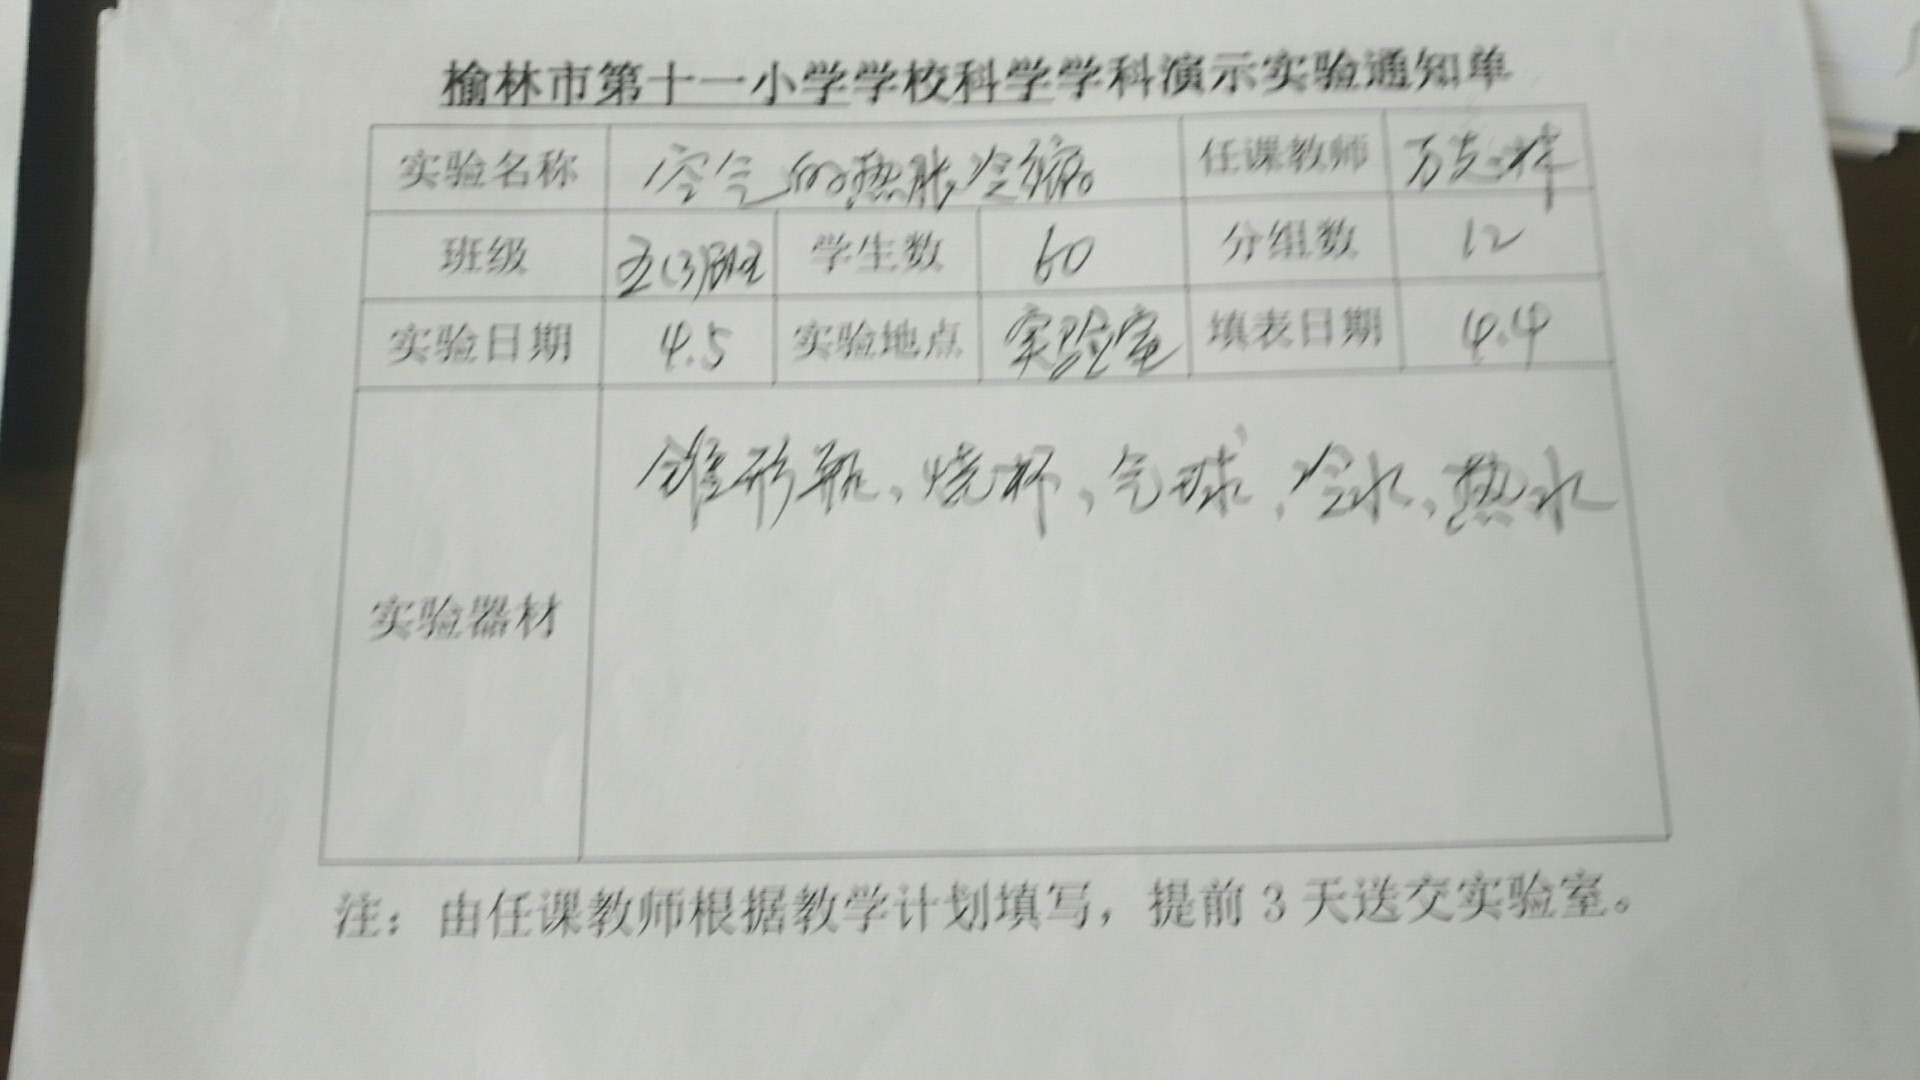 榆林市第十一小学学校科学学科演示实验通知单
实验名称 空气的热胀冷缩。 任课教师
班级 五(3)班 学生数 60 分组数 12
实验日期 4.5 实验地点 实验室 填表日期 4.4
锥形瓶、烧杯、气球、冷水、热水
实验器材
注：由任课教师根据教学计划填写，提前3天送交实验室。